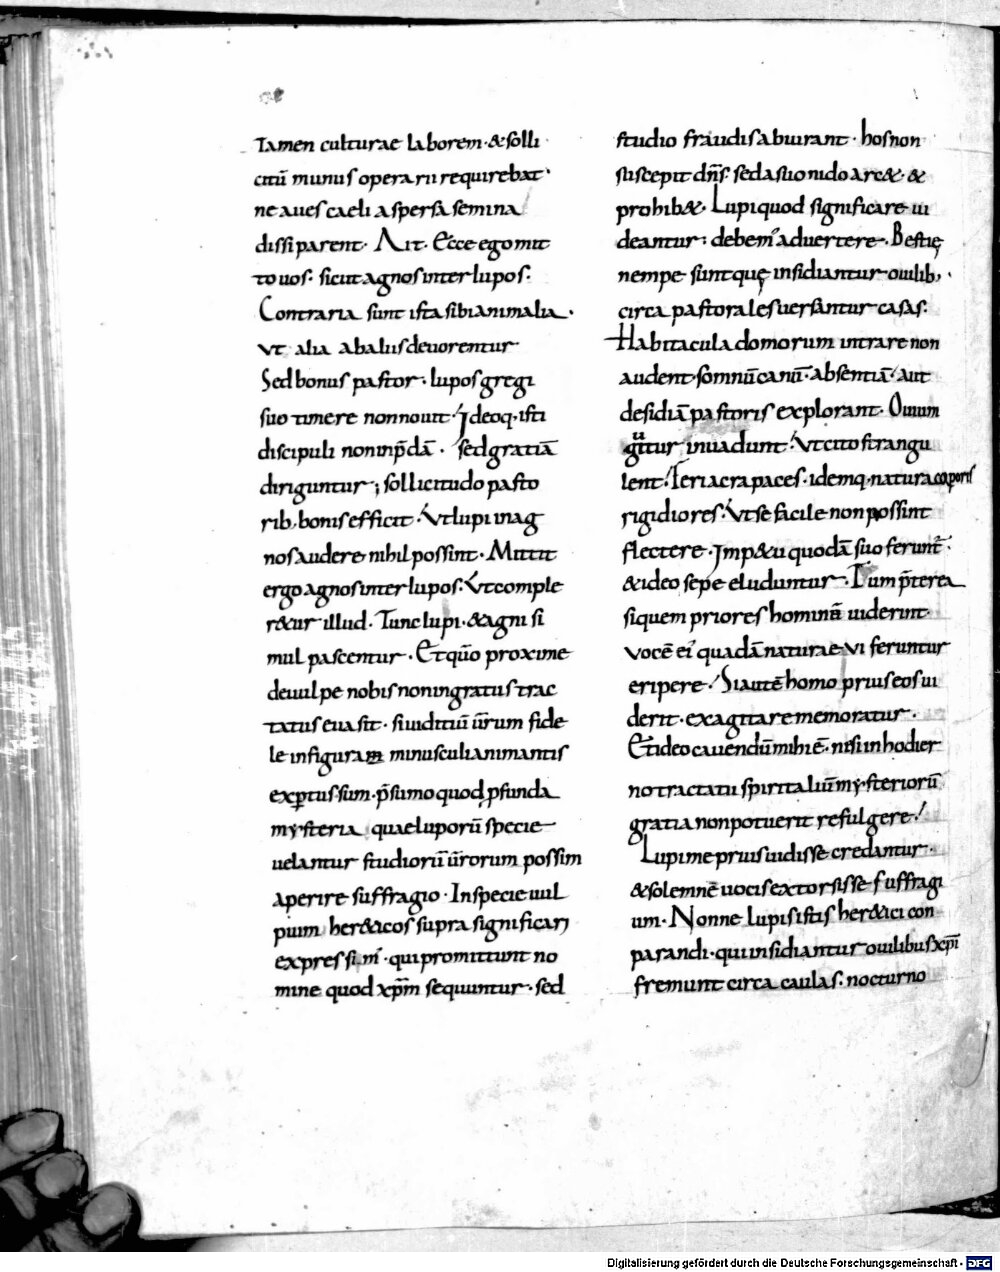 Tamen culturae laborem · & solli
citū munus operarii requirebat ·
ne aues caeli aspersa semina
dissiparent · Ait · Ecce ego mit
to uos · sicut agnos inter lupos ·
Contraria sunt ista sibi animalia ·
ut alia ab aliis deuorentur
Sed bonus pastor · lupos gregi
suo timere non nouit · Ideoq · isti
discipuli non in p̄dā · sed gratiā
diriguntur ; sollicitudo pasto
rib, bonis efficit · Ut lupi in ag
nos audere nihil possint · Mittit
ergo agnos inter lupos · Ut comple
r&ur illud · Tunc lupi · & agni si
mul pascentur · Et qūo proxime
de uulpe nobis non ingratus trac
tatus euasit · si uiditiū ūrum fide
le in figuram minusculi animantis
exptus sum · p̄sumo quod pfunda
mysteria quae luporū specie
uelantur studiorū ūrorum possim
aperire suffragio · In specie uul
pium her&icos supra significari
expressim' · qui promittunt no
mine quod xp̄m sequuntur · sed
studio fraudis abiurant · hos non
suscepit dn̄s · sed a suo nido arc& · &
prohib& · Lupi quod significare ui
deantur · debem' aduertere · Bestię
nempe sunt quę insidiantur ouilib, ·
circa pastorales uersantur casas ·
Habitacula domorum intrare non
audent · somnū canū · absentiā · aut
desidiā pastoris explorant · Ouium
guttur inuadunt · Ut cito strangu
lent · Feri acra paces · idemq · natura corporis
rigidiores · Ut se facile non possint
flectere · Imp&u quodā suo ferunt̄ ·
& ideo sepe eluduntur · Tum p̄terea
si quem priores hominē uiderint
uocē ei' quadā naturae ui feruntur
eripere · Si autē homo prius eos ui
derit · exagitare memoratur ·
Et ideo cauendū mihi ē · ne si in hodier
no tractatu spiritaliū mysteriorū
gratia non potuerit refulgere ·
Lupi me prius uidisse credantur ·
& solemnē uocis extorsisse suffragi
um · Nonne lupis istis her&ici con
parandi · qui insidiantur ouilibus xp̄i
fremunt circa caulas · nocturno
Digitalisierung gefördert durch die Deutsche Forschungsgemeinschaft - DFG